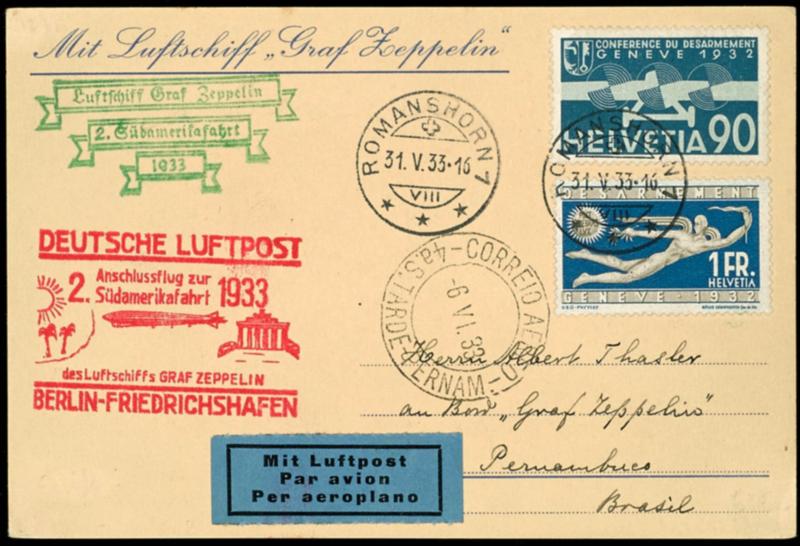 Mit Luftschiff „Graf Zeppelin“
Luftschiff Graf Zeppelin
2. Südamerikafahrt
1933
ROMANSHORN 1
31. V. 33·16
VIII
CONFERENCE DU DESARMEMENT
GENEVE 1932
HELVETIA 90
ROMANSHORN 1
31. V. 33·16
VIII
DESARMEMENT
1 FR.
HELVETIA
GENEVE · 1932
DEUTSCHE LUFTPOST
2. Anschlussflug zur
Südamerikafahrt 1933
des Luftschiffs GRAF ZEPPELIN
BERLIN-FRIEDRICHSHAFEN
CORREIO
4a S. TARDE-PERNAM
-6 VI. 33
Herrn Albert Thasler
an Bord „Graf Zeppelin“
Pernambuco
Brasil
Mit Luftpost
Par avion
Per aeroplano